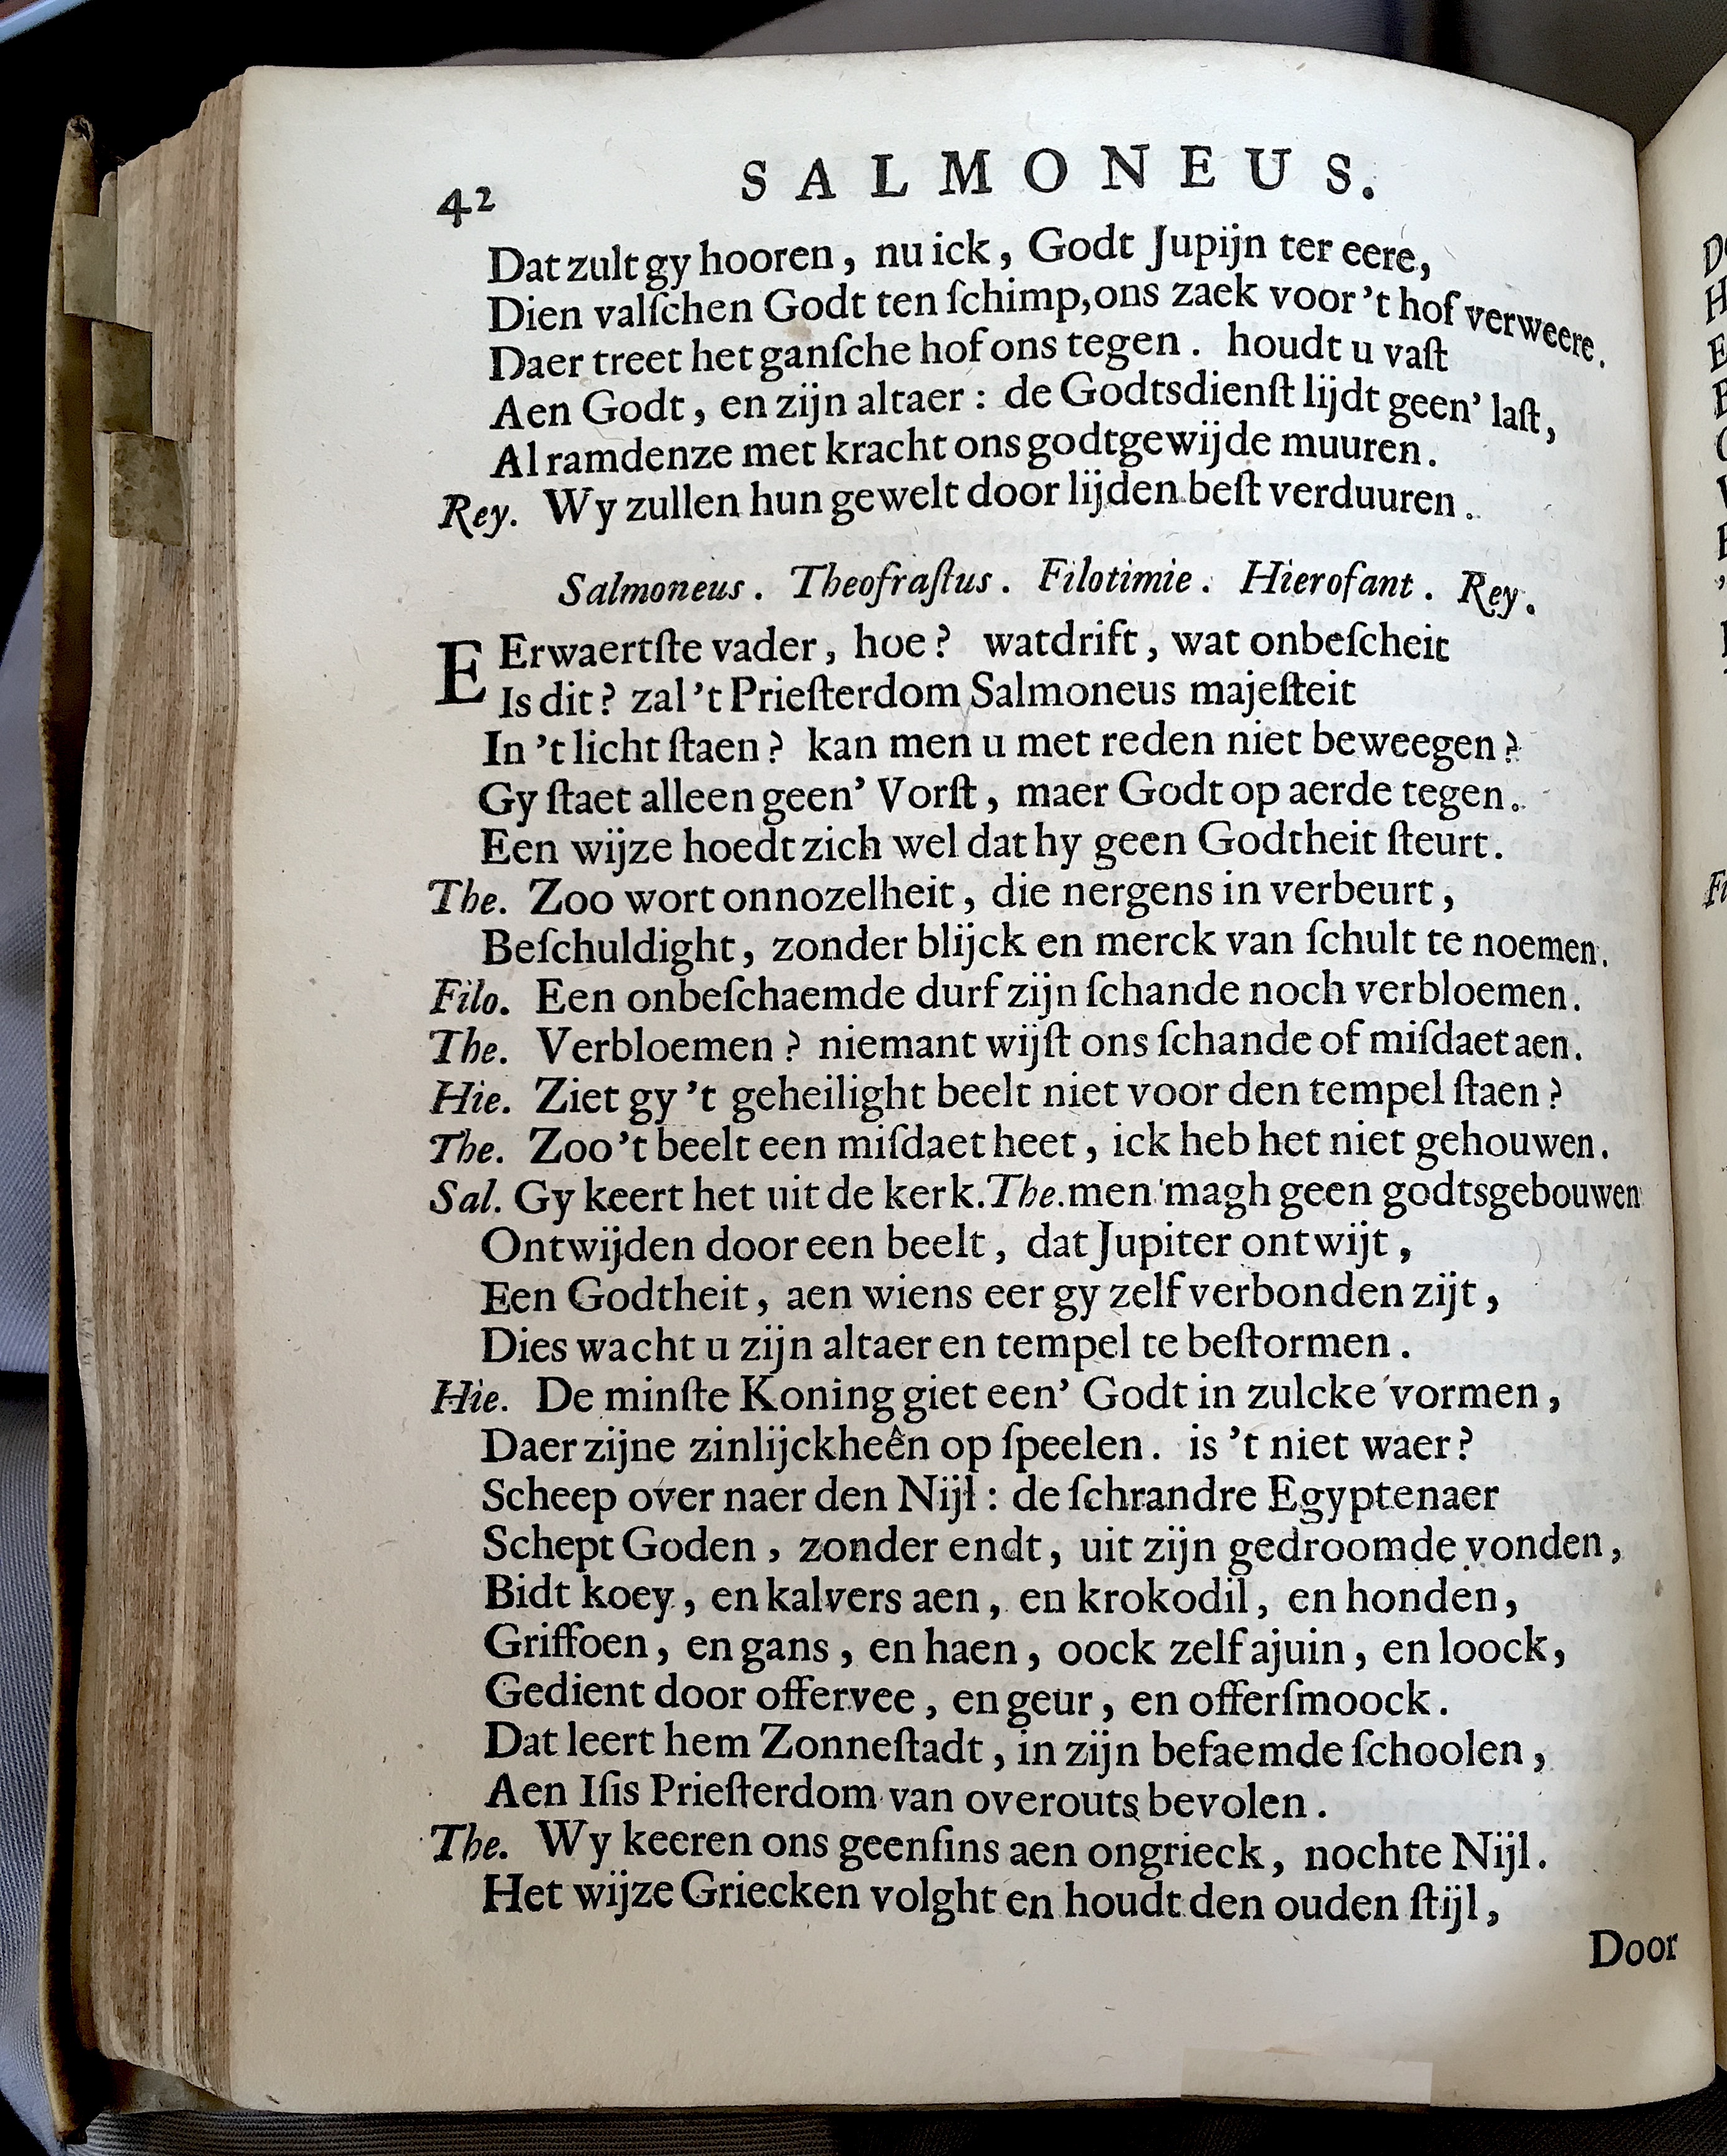 42 SALMONEUS.
Dat zult gy hooren, nu ick, Godt Jupijn ter eere,
Dien valſchen Godt ten ſchimp, ons zaek voor 't hof verweere.
Daer treet het ganſche hof ons tegen. houdt u vaſt
Aen Godt, en zijn altaer: de Godtsdienſt lijdt geen' laſt,
Al ramdenze met kracht ons godtgewijde muuren.
Rey. Wy zullen hun gewelt door lijden beſt verduuren.
Salmoneus. Theofraſtus. Filotimie. Hierofant. Rey.
EErwaertſte vader, hoe? wat drift, wat onbeſcheit
Is dit? zal 't Prieſterdom Salmoneus majeſteit
In 't licht ſtaen? kan men u met reden niet beweegen?
Gy ſtaet alleen geen' Vorſt, maer Godt op aerde tegen.
Een wijze hoedt zich wel dat hy geen Godtheit ſteurt.
The. Zoo wort onnozelheit, die nergens in verbeurt,
Beſchuldight, zonder blijck en merck van ſchult te noemen.
Filo. Een onbeſchaemde durf zijn ſchande noch verbloemen.
The. Verbloemen? niemant wijſt ons ſchande of miſdaet aen.
Hie. Ziet gy 't geheilight beelt niet voor den tempel ſtaen?
The. Zoo 't beelt een miſdaet heet, ick heb het niet gehouwen.
Sal. Gy keert het uit de kerk. The. men magh geen godtsgebouwen
Ontwijden door een beelt, dat Jupiter ontwijt,
Een Godtheit, aen wiens eer gy zelf verbonden zijt,
Dies wacht u zijn altaer en tempel te beſtormen.
Hie. De minſte Koning giet een' Godt in zulcke vormen,
Daer zijne zinlijckheên op ſpeelen. is 't niet waer?
Scheep over naer den Nijl: de ſchrandre Egyptenaer
Schept Goden, zonder endt, uit zijn gedroomde vonden,
Bidt koey, en kalvers aen, en krokodil, en honden,
Griffoen, en gans, en haen, oock zelf ajuin, en loock,
Gedient door offervee, en geur, en offerſmoock.
Dat leert hem Zonneſtadt, in zijn befaemde ſchoolen,
Aen Iſis Prieſterdom van overouts bevolen.
The. Wy keeren ons geenſins aen ongrieck, nochte Nijl.
Het wijze Griecken volght en houdt den ouden ſtijl,
Door